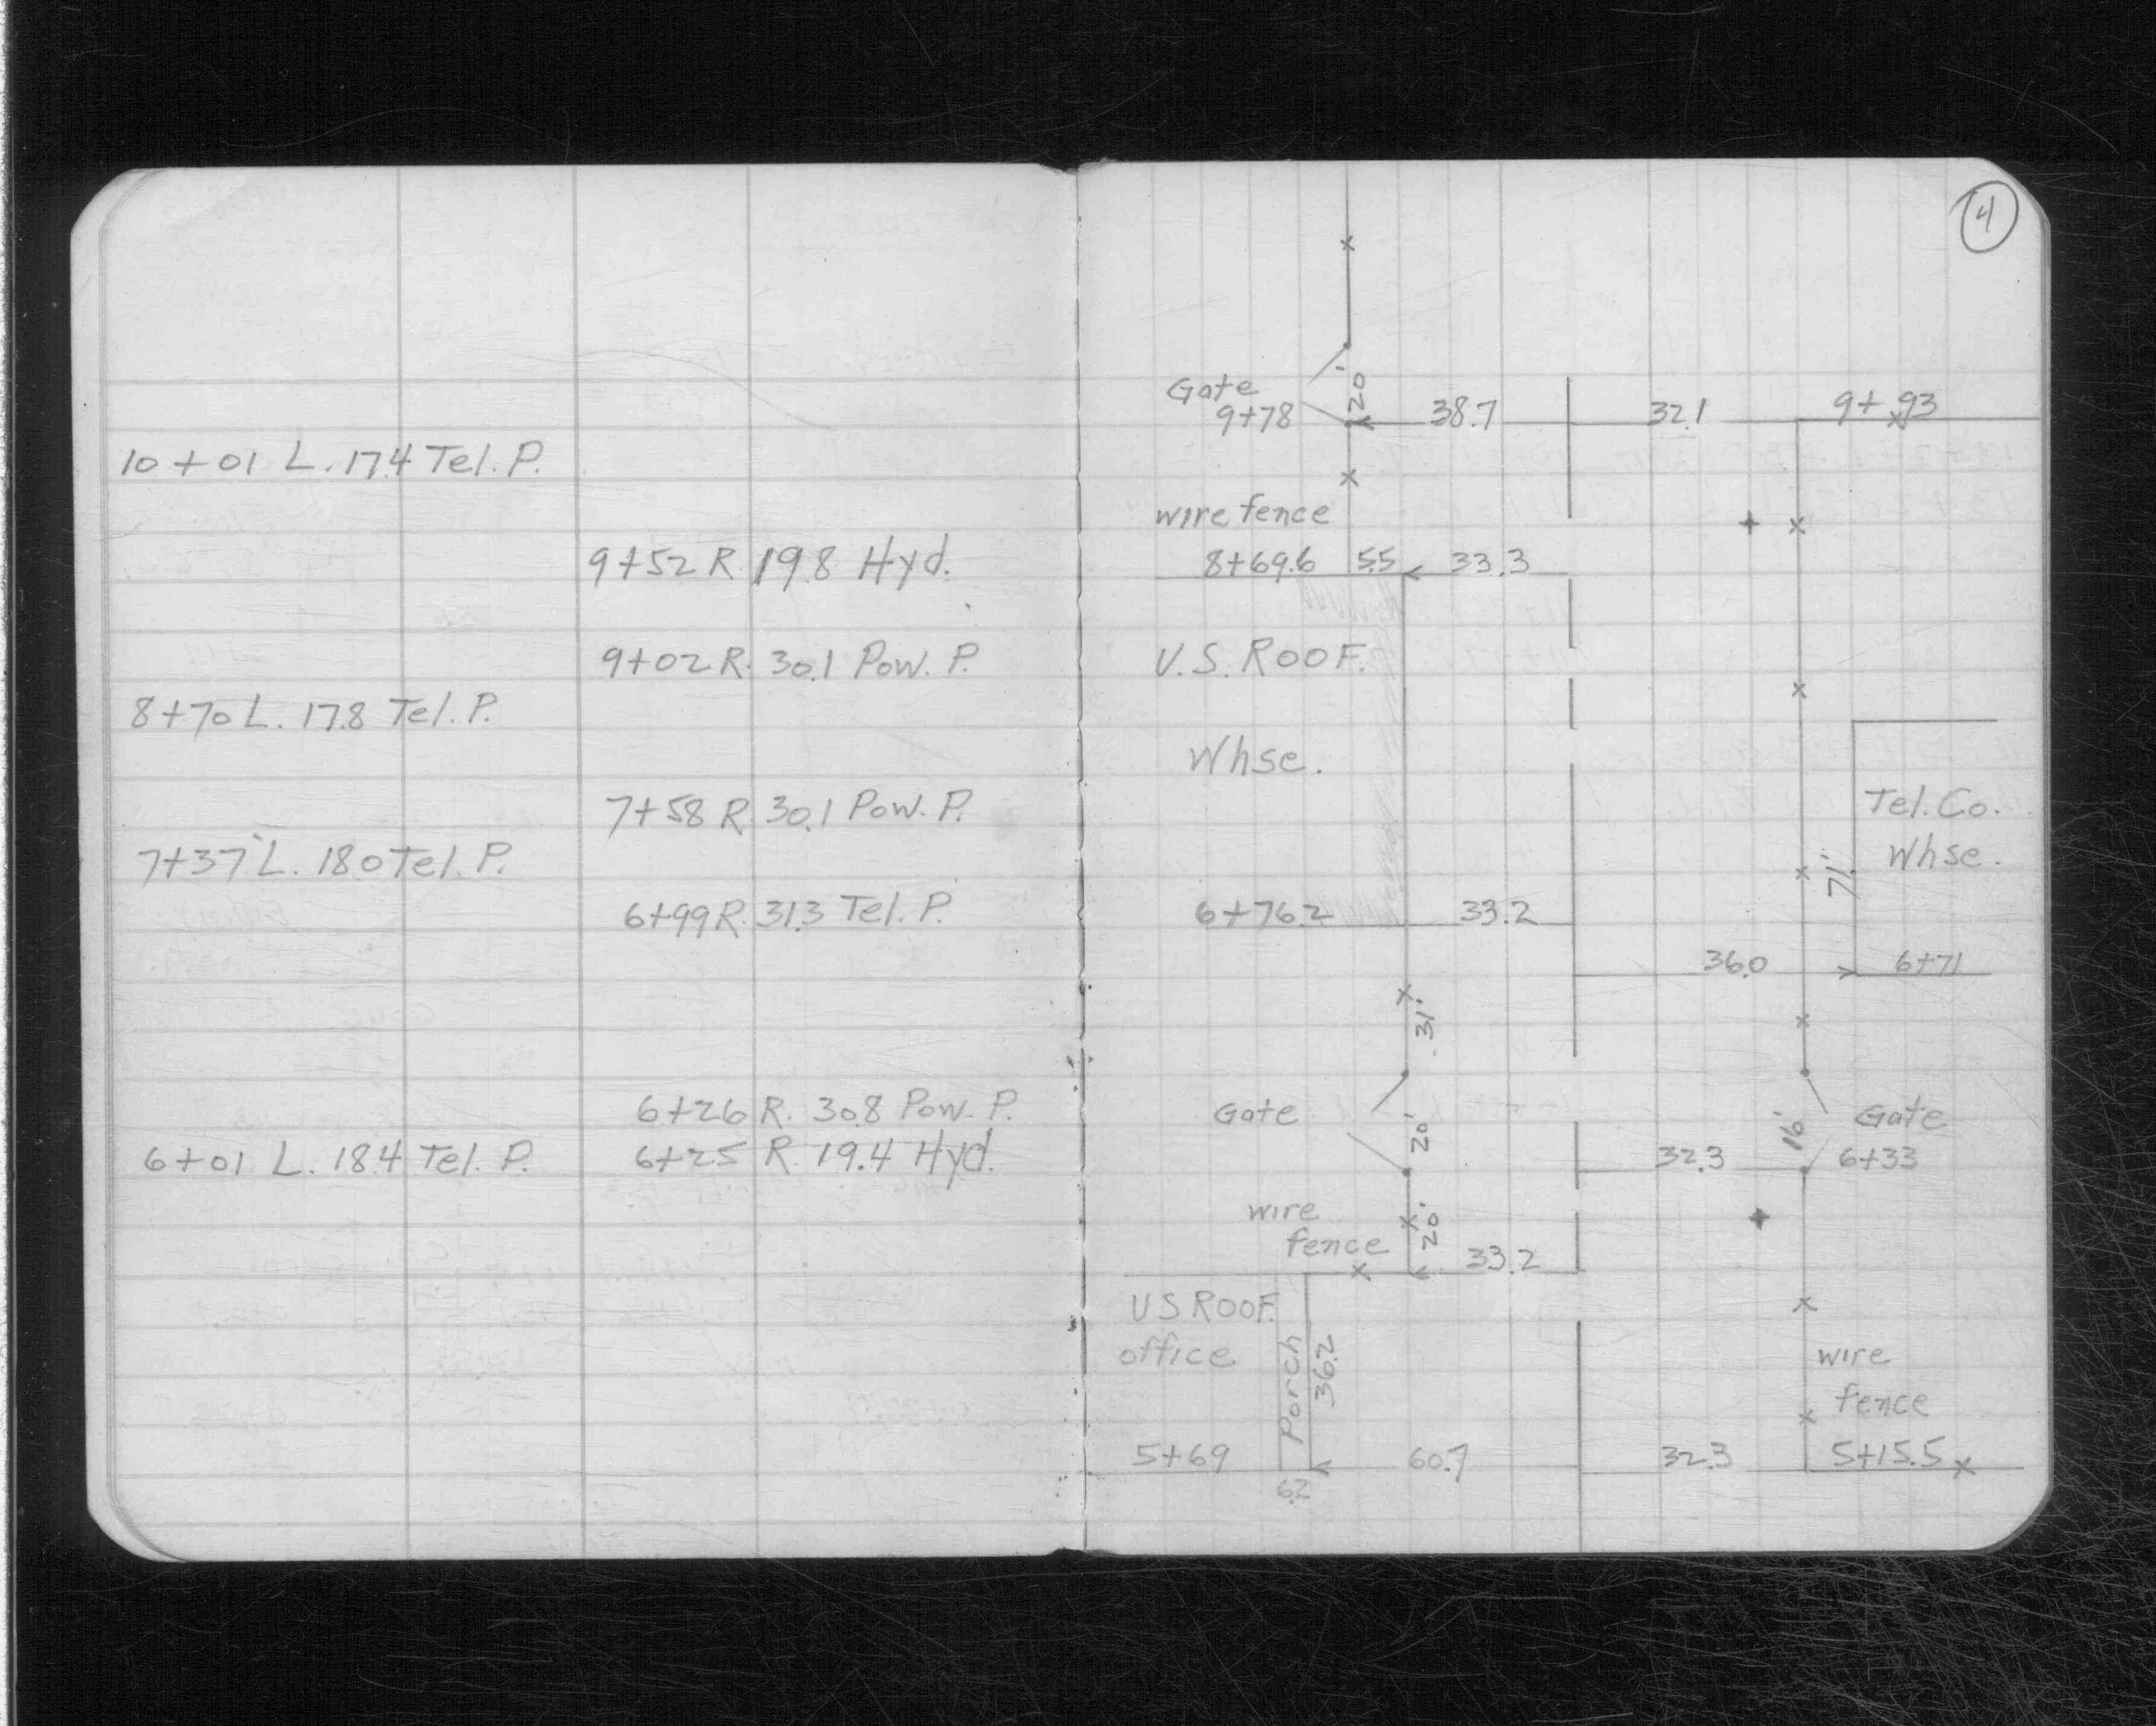 10+01 L. 17.4 Tel. P.
9+52 R. 19.8 Hyd.
9+02 R. 30.1 Pow. P.
8+70 L. 17.8 Tel. P.
7+58 R. 30.1 Pow. P.
7+37 L. 18.0 Tel. P.
6+99 R. 31.3 Tel. P.
6+26 R. 30.8 Pow. P.
6+01 L. 18.4 Tel. P.
6+25 R. 19.4 Hyd.
4
Gate
20'
9+78
38.7
32.1
9+93
wire fence
8+69.6
5.5
33.3
U.S. ROOF.
Whse.
Tel. Co.
Whse.
71'
6+76.2
33.2
36.0
6+71
31'
Gate
20'
16'
Gate
32.3
6+33
wire
fence
20'
33.2
U S ROOF.
office
Porch
36.2
wire
fence
5+69
60.7
32.3
5+15.5
6.2